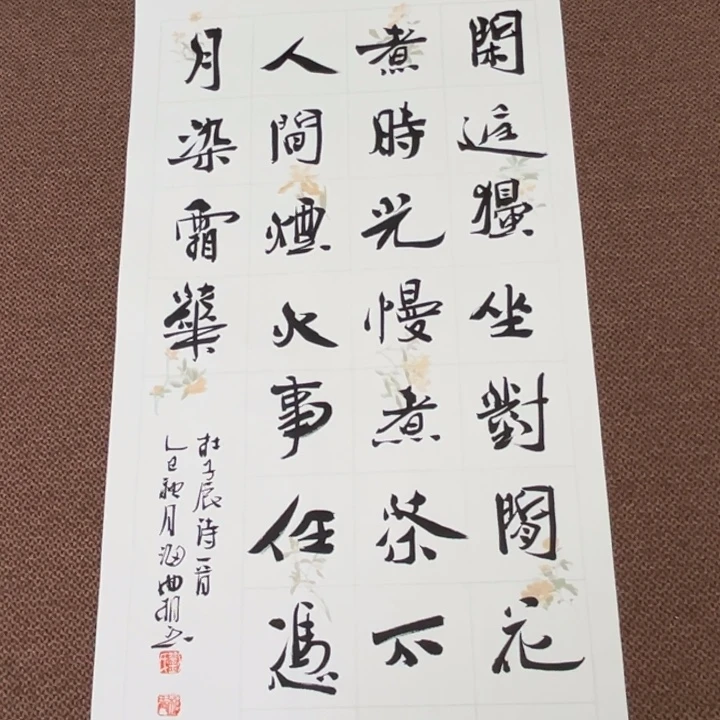 閑庭獨坐對閒花
煮時光慢煮茶不
人間煙火事任憑
月染霜華
杜子辰诗一首
乙巳秋月